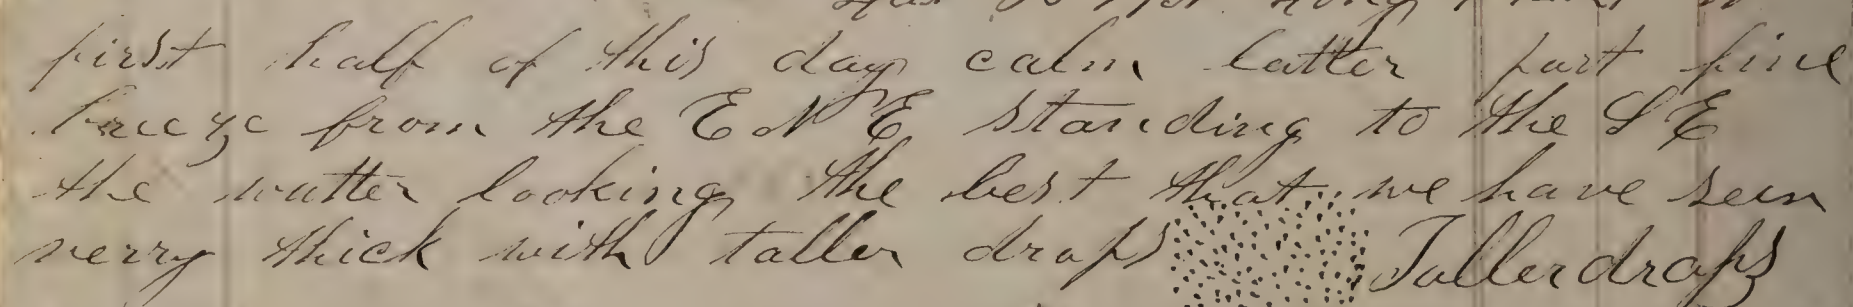 first half of this day calm latter part fine
breeze from the E N E standing to the S E
the watter looking the best that we have seen
verry thick with taller drops Tallerdrops